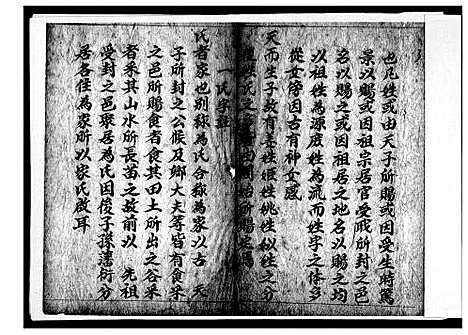 也凡姓或由天子所賜或因受生時寫
景以賜之或因祖宗居官受職所封之邑
名以賜之或因祖居之地名以賜之均
以祖姓為源底姓為流而姓字之体多
從女傍因古有神女感
天而生子故有姜姓姬姓姚姓姒姓之分
姓氏之
一氏字註
氏者家也別称為氏合称為家以古 天
子所封之公候及鄉大夫等皆有食采
之邑所賜食者食其田土所出之谷采
者釆其山水所長苗之故前以 先祖
受封之邑聚居為氏因後子孫瀋衍分
居各住為家所以家氏啟耳